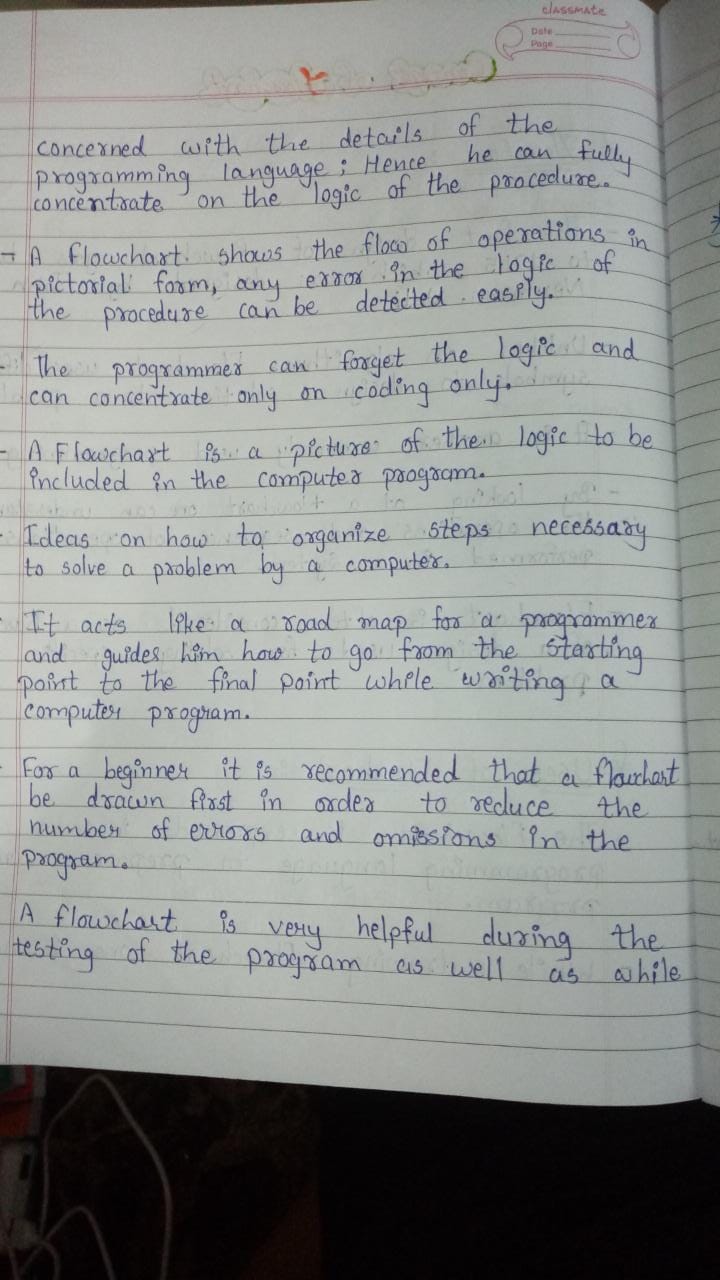 classmate
Date
Page
concerned with the details of the
programming language; Hence he can fully
concentrate on the logic of the procedure.
- A flowchart shows the flow of operations in
pictorial form, any error in the logic of
the procedure can be detected easily.
- The programmer can forget the logic and
can concentrate only on coding only.
- A Flowchart is a picture of the logic to be
included in the computer program.
- Ideas on how to organize steps necessary
to solve a problem by a computer.
It acts like a road map for a programmer
and guides him how to go from the starting
point to the final point while writing a
computer program.
- For a beginner it is recommended that a flowchart
be drawn first in order to reduce the
number of errors and omissions in the
program.
A flowchart is very helpful during the
testing of the program as well as while